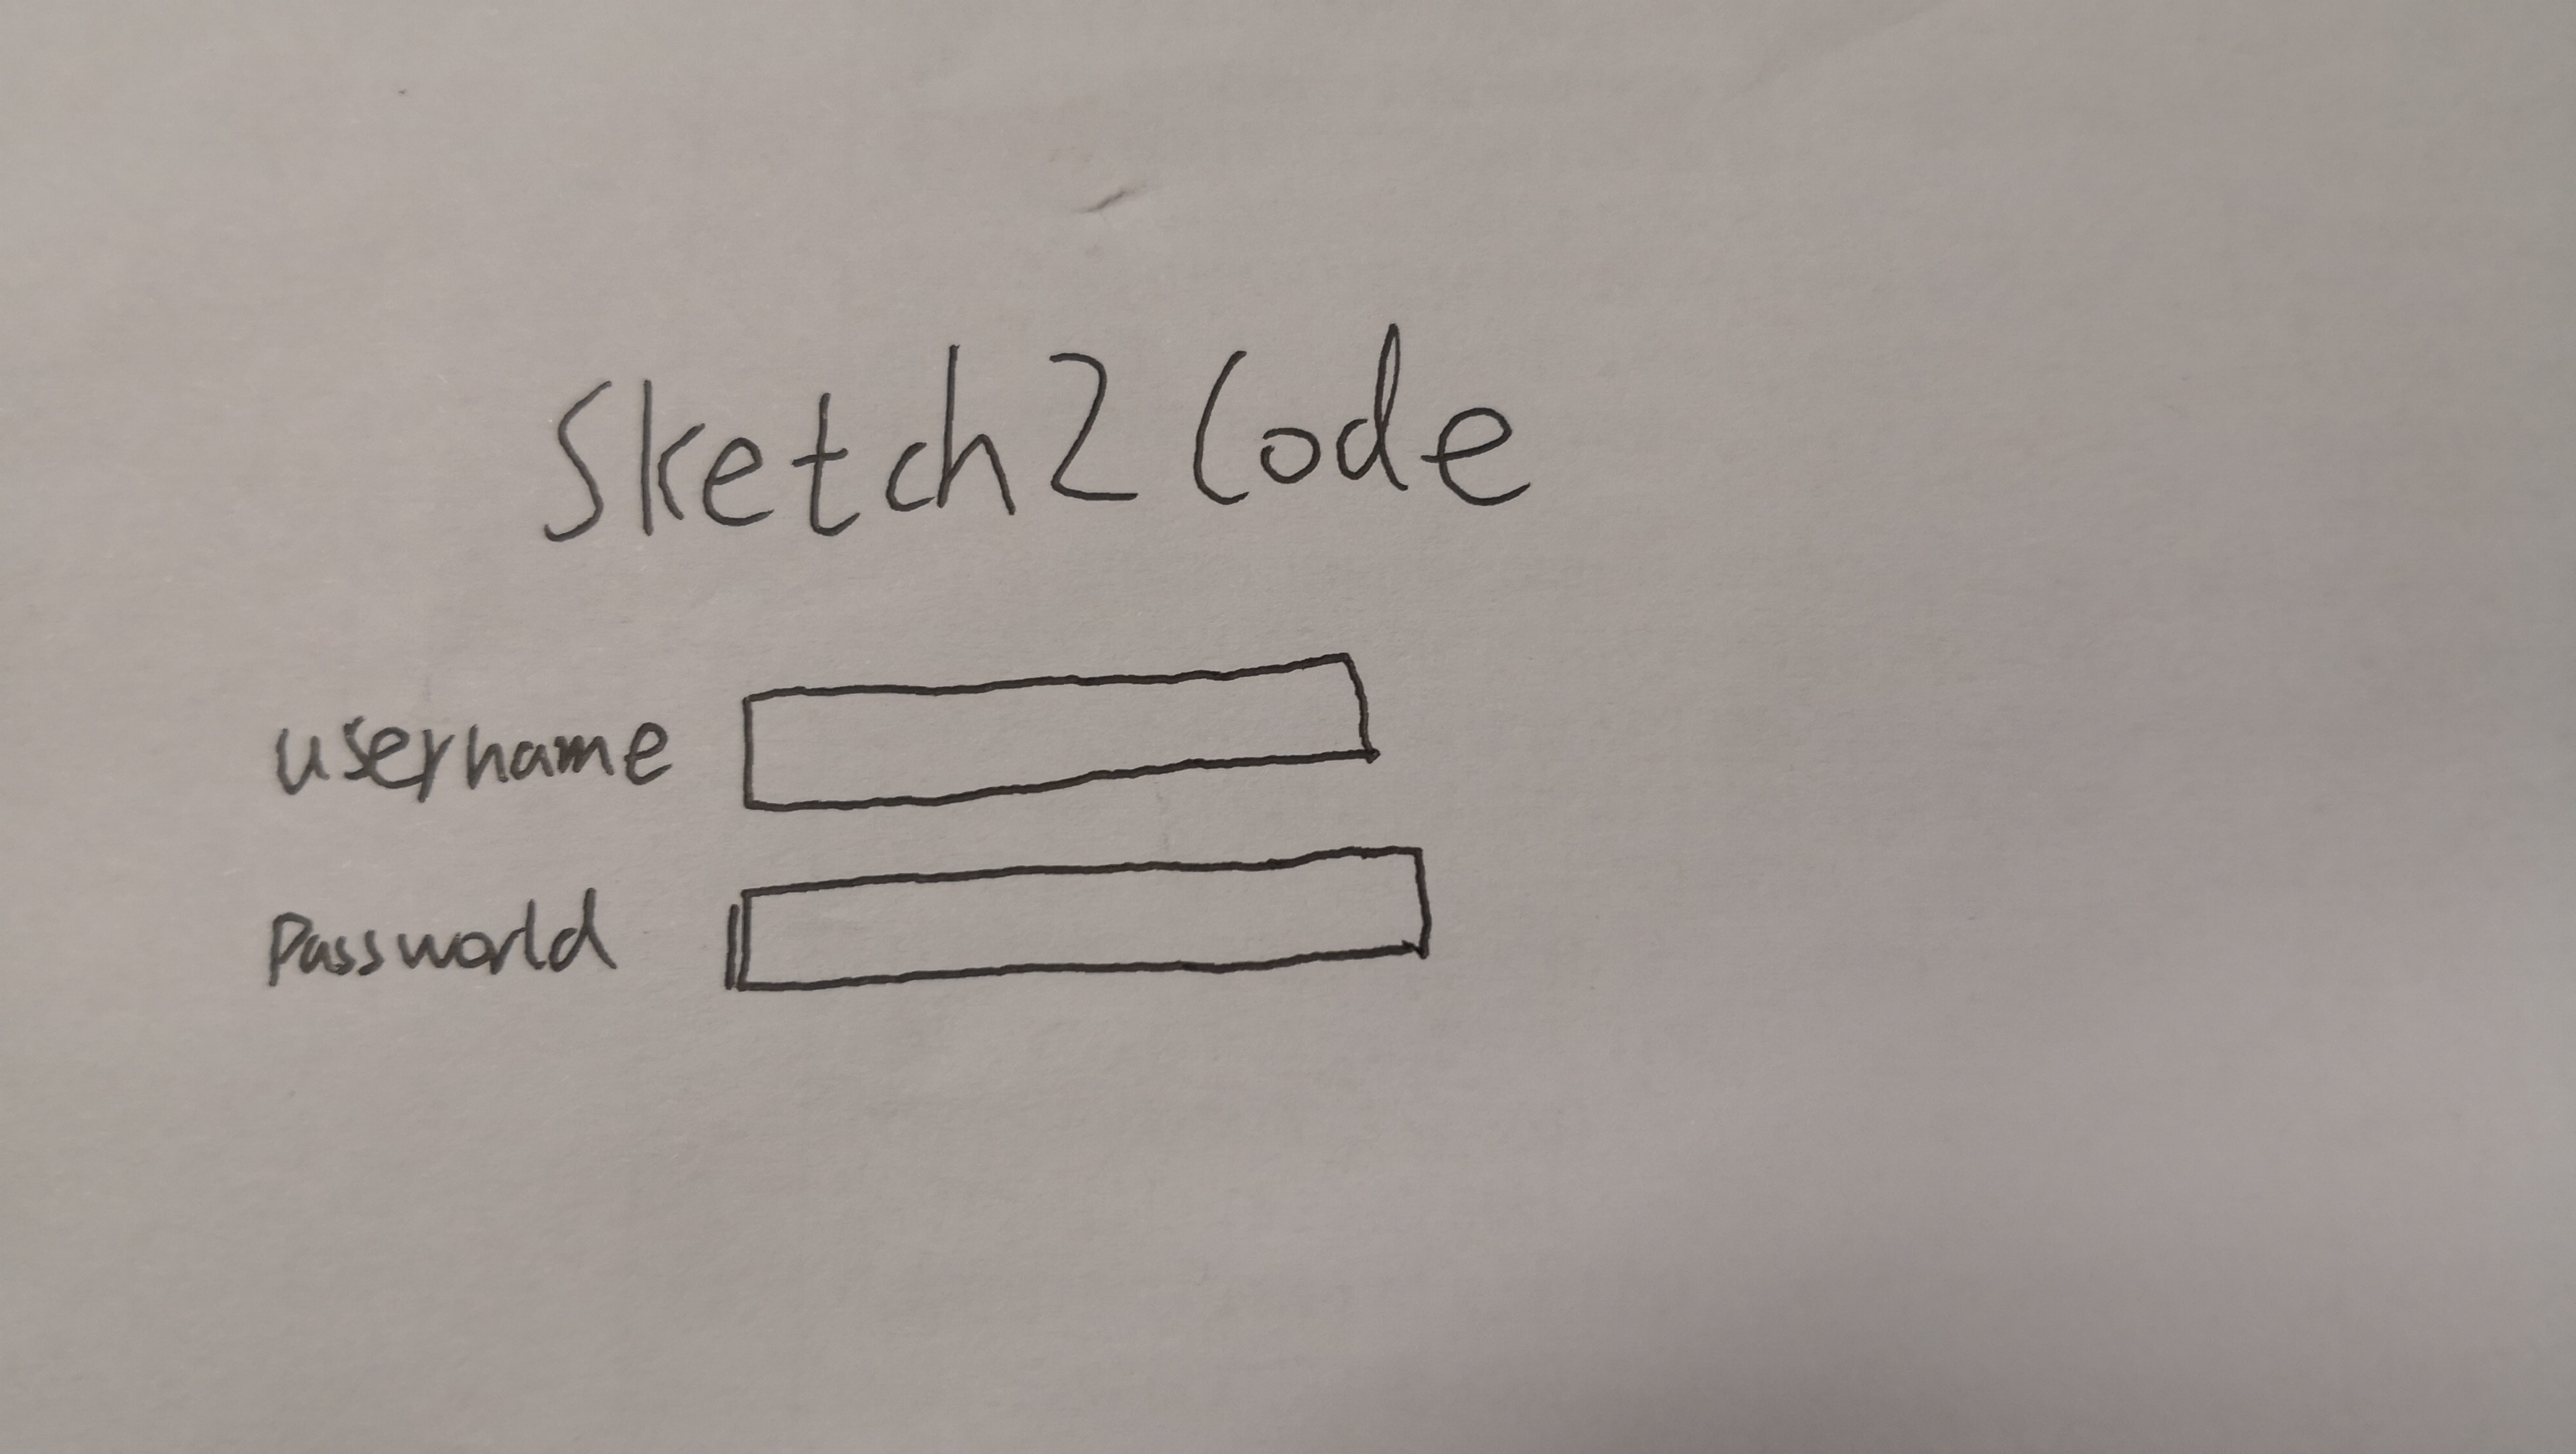 Sketch2Code
username
Passworld